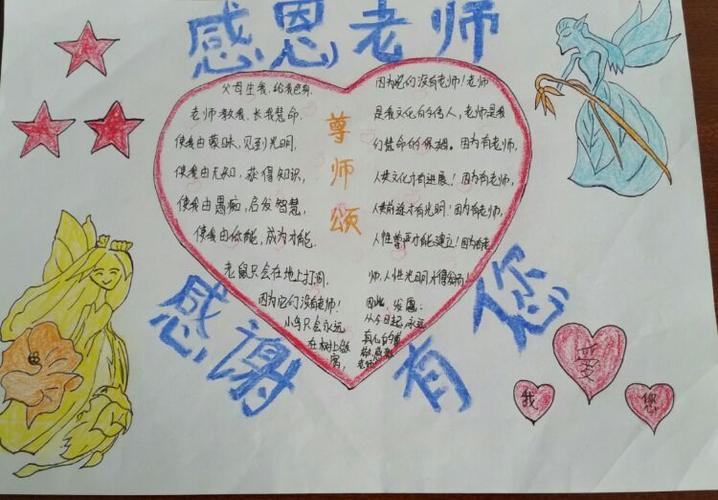 感恩老师
尊师颂
父母生我,给我色身,
老师教我,长我慧命,
使我由蒙昧,见到光明,
使我由无知,获得知识,
使我由愚痴,启发智慧,
使我由低能,成为才能,
老鼠只会在地上打洞,
因为它们没有老师!
小鸟只会永远
在树上做
窝,
因为它们没有老师!老师
是我文化的传人,老师是我
们慧命的保姆。因为有老师,
人类文化才有进展!因为有老师,
人类前途才有光明!因为有老师,
人性尊严才能建立!因为有老
师,人性光明才得
因此,发愿:
从今日起,永远
感谢有您
爱
我
您